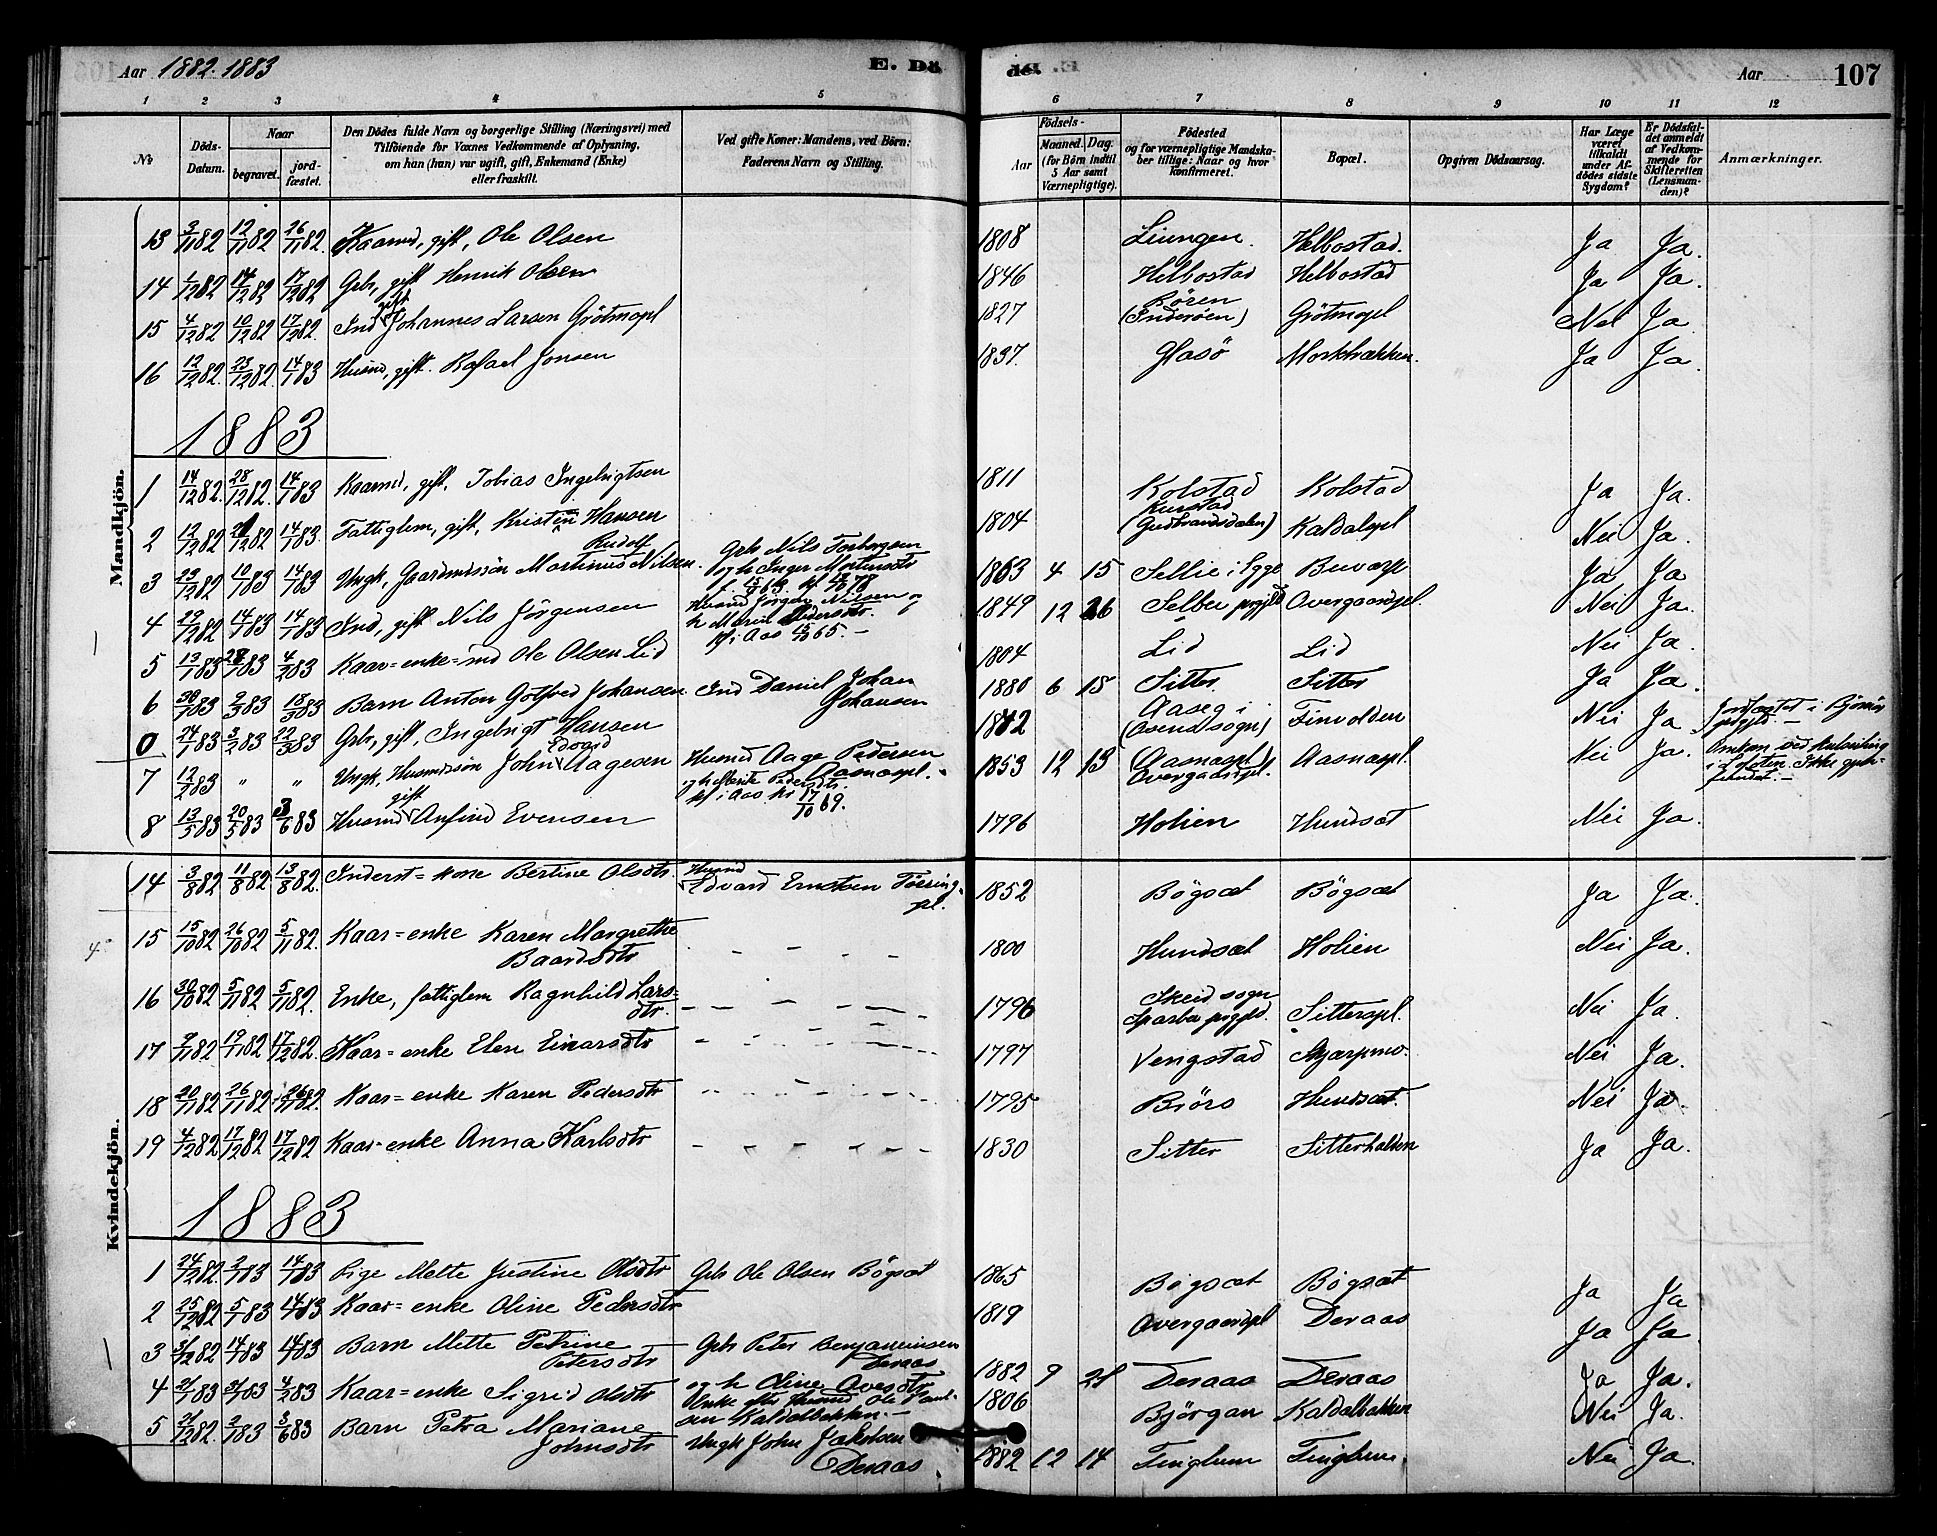 Aar 1882-1883
E. Dö
de.
Aar 107
1 2 3 4 5 6 7 8 9 10 11 12
No
Döds-Datum.
Naar
begravet.
jordfæstet.
Den Dödes fulde Navn og borgerlige Stilling (Næringsvei) med
Tilföiende for Voxnes Vedkommende af Oplysning,
om han (hun) var ugift, gift, Enkemand (Enke)
eller fraskilt.
Ved gifte Koner: Mandens, ved Börn:
Faderens Navn og Stilling.
Födsels-
Aar
Maaned. Dag.
(for Börn indtil
5 Aar samt
Værnepligtige).
Födested
og for værnepligtige Mandskaber
tillige: Naar og hvor
konfirmeret.
Bopæl.
Opgiven Dödsaarsag.
Har Læge
været
tilkaldt
under Afdödes
sidste
Sygdom?
Er Dödsfaldet
anmeldt
af Vedkommende
for
Skifteretten
(Lensmanden)?
Anmærkninger.
Mandkjön.
13 3/11 82 12/11 82 26/11 82. Kaarmd, gift, Ole Olsen 1808 Liungen. Helbostad. Ja Ja.
14 1/12 82 14/12 82 17/12 82 Gbr, gift Henrik Olsen 1846 Helbostad Helbostad Ja Ja.
15 4/12 82 10/12 82 17/12 82. Ind gift Johannes Larsen Grötmopl 1827 Bören (Inderöen) Grötmopl Nei Ja
16 12/12 82. 23/12 82. 14/1 83 Husmd, gift. Rafael Jonsen 1837. Glasö Morkbakken. Ja Ja
1883
1 14/12 82. 28/12 82. 14/1 83 Kaarmd, gift. Tobias Ingebrigtsen 1811 Kolstad Kolstad Ja Ja.
2 12/12 82 21/12 82 14/1 83. Fattiglem, gift, Kristen Hansen 1804 (Gudbrandsdalen) Kaldalspl Nei Ja.
3 23/12 82 10/1 83 14/1 83 Ungk, Gaardmdssön Martinus Rudolf Nilsen. Gbr Nils Torbergsen
og h Inger Mortensdtr 1863 4 15 Sellie i Egge Ja Ja
4 29/12 82 14/1 83 14/1 83 Ind, gift Nils Jörgensen Husmd Jörgen Nilsen og
h Marie Pedersdtr.
kf i Aas 15/10 65. — 1849 12 26 Selbu prgjld Overgaardspl. Nei Ja.
5 13/1 83 28/1 83 4/2 83 Kaar=enke=md Ole Olsen Lid 1804 Lid Lid Nei Ja.
6 30/1 83 9/3 83 18/3 83 Barn Anton Gotfred Johansen. Ind Daniel Johan
Johansen 1880 6 15 Sitter. Sitter Ja Ja.
0 24/1 83 3/2 83 22/3 83 Gbr, gift, Ingebrigt Hansen 1812 Aaseg i (Osens sogn) Finvolden Nei Ja Jordfæstet i Björnör prgjld. —
7 12/2 83 " " Ungk, Husmdssön John Edvard Aagesen Husmd Aage Pedersen
Aasnaspl. 17/10 69. 1853 12 13 (Aasnaspl. Overgaardspl. Aasnaspl. Nei Ja. Omkom ved
i Lofoten. Ikke
8 13/5 83 20/5 83 3/6 83 Husmd gift Anfind Evensen 1796 Holien Hundsæt Nei Ja.
Kvindekjön.
14 3/8 82 11/8 82 13/8 82. Inderst=kone Bertine Olsdtr. Husmd
Edvard Ernstsen Töringpl. 1852 Bögsæt Bögsæt Ja Ja.
15 15/10 82 26/10 82 5/11 82. Kaar=enke Karen Margrethe
Baardsdtr 1800 Hundsæt Holien Nei Ja.
16 30/10 82 5/11 82 5/11 82. Enke, fattiglem Ragnhild Larsdtr. 1796 Skeid sogn
Sparbu prgjld. Sitterspl. Nei Ja.
17 9/11 82 19/11 82 17/12 82. Kaar=enke Elen Einarsdtr 1797 Vengstad Skjærpmo. Nei Ja.
18 20/11 82 26/11 82 26/11 82. Kaar=enke Karen Pedersdtr 1795 Biörs Hundsæt. Nei Ja.
19 4/12 82 17/12 82 17/12 82 Kaar=enke Anna Karlsdtr 1830 Sitter Sitterbakken Ja Ja.
1883
1 24/12 82. 2/1 83 14/1 83 Pige Mette Justine Olsdtr Gbr Ole Olsen Bögsæt 1865 Bögsæt Bögsæt Ja Ja
2 25/12 82 5/1 83 14/1 83 Kaar=enke Oline Pedersdtr 1819 Overgaardspl Deraas Ja Ja
3 31/12 82 14/1 83 14/1 83 Barn Mette Petrine
Petersdtr Gbr Peter Benjaminsen
Deraas
og h Oline Ovesdtr 1882 9 21 Deraas Deraas Ja Ja.
4 21/1 83 31/1 83 4/2 83 Kaar=enke Sigrid Olsdtr Enke efter Husmd Ole Paulsen
Kaldalbakken. 1806 Björgan Kaldalbakken Nei Ja.
5 21/12 82. 2/1 83 3/6 83 Barn Petra Mariane
Johnsdtr Ungk John Jakobsen
Deraas 1882 12 14 Tinglum Tinglum Nei Ja